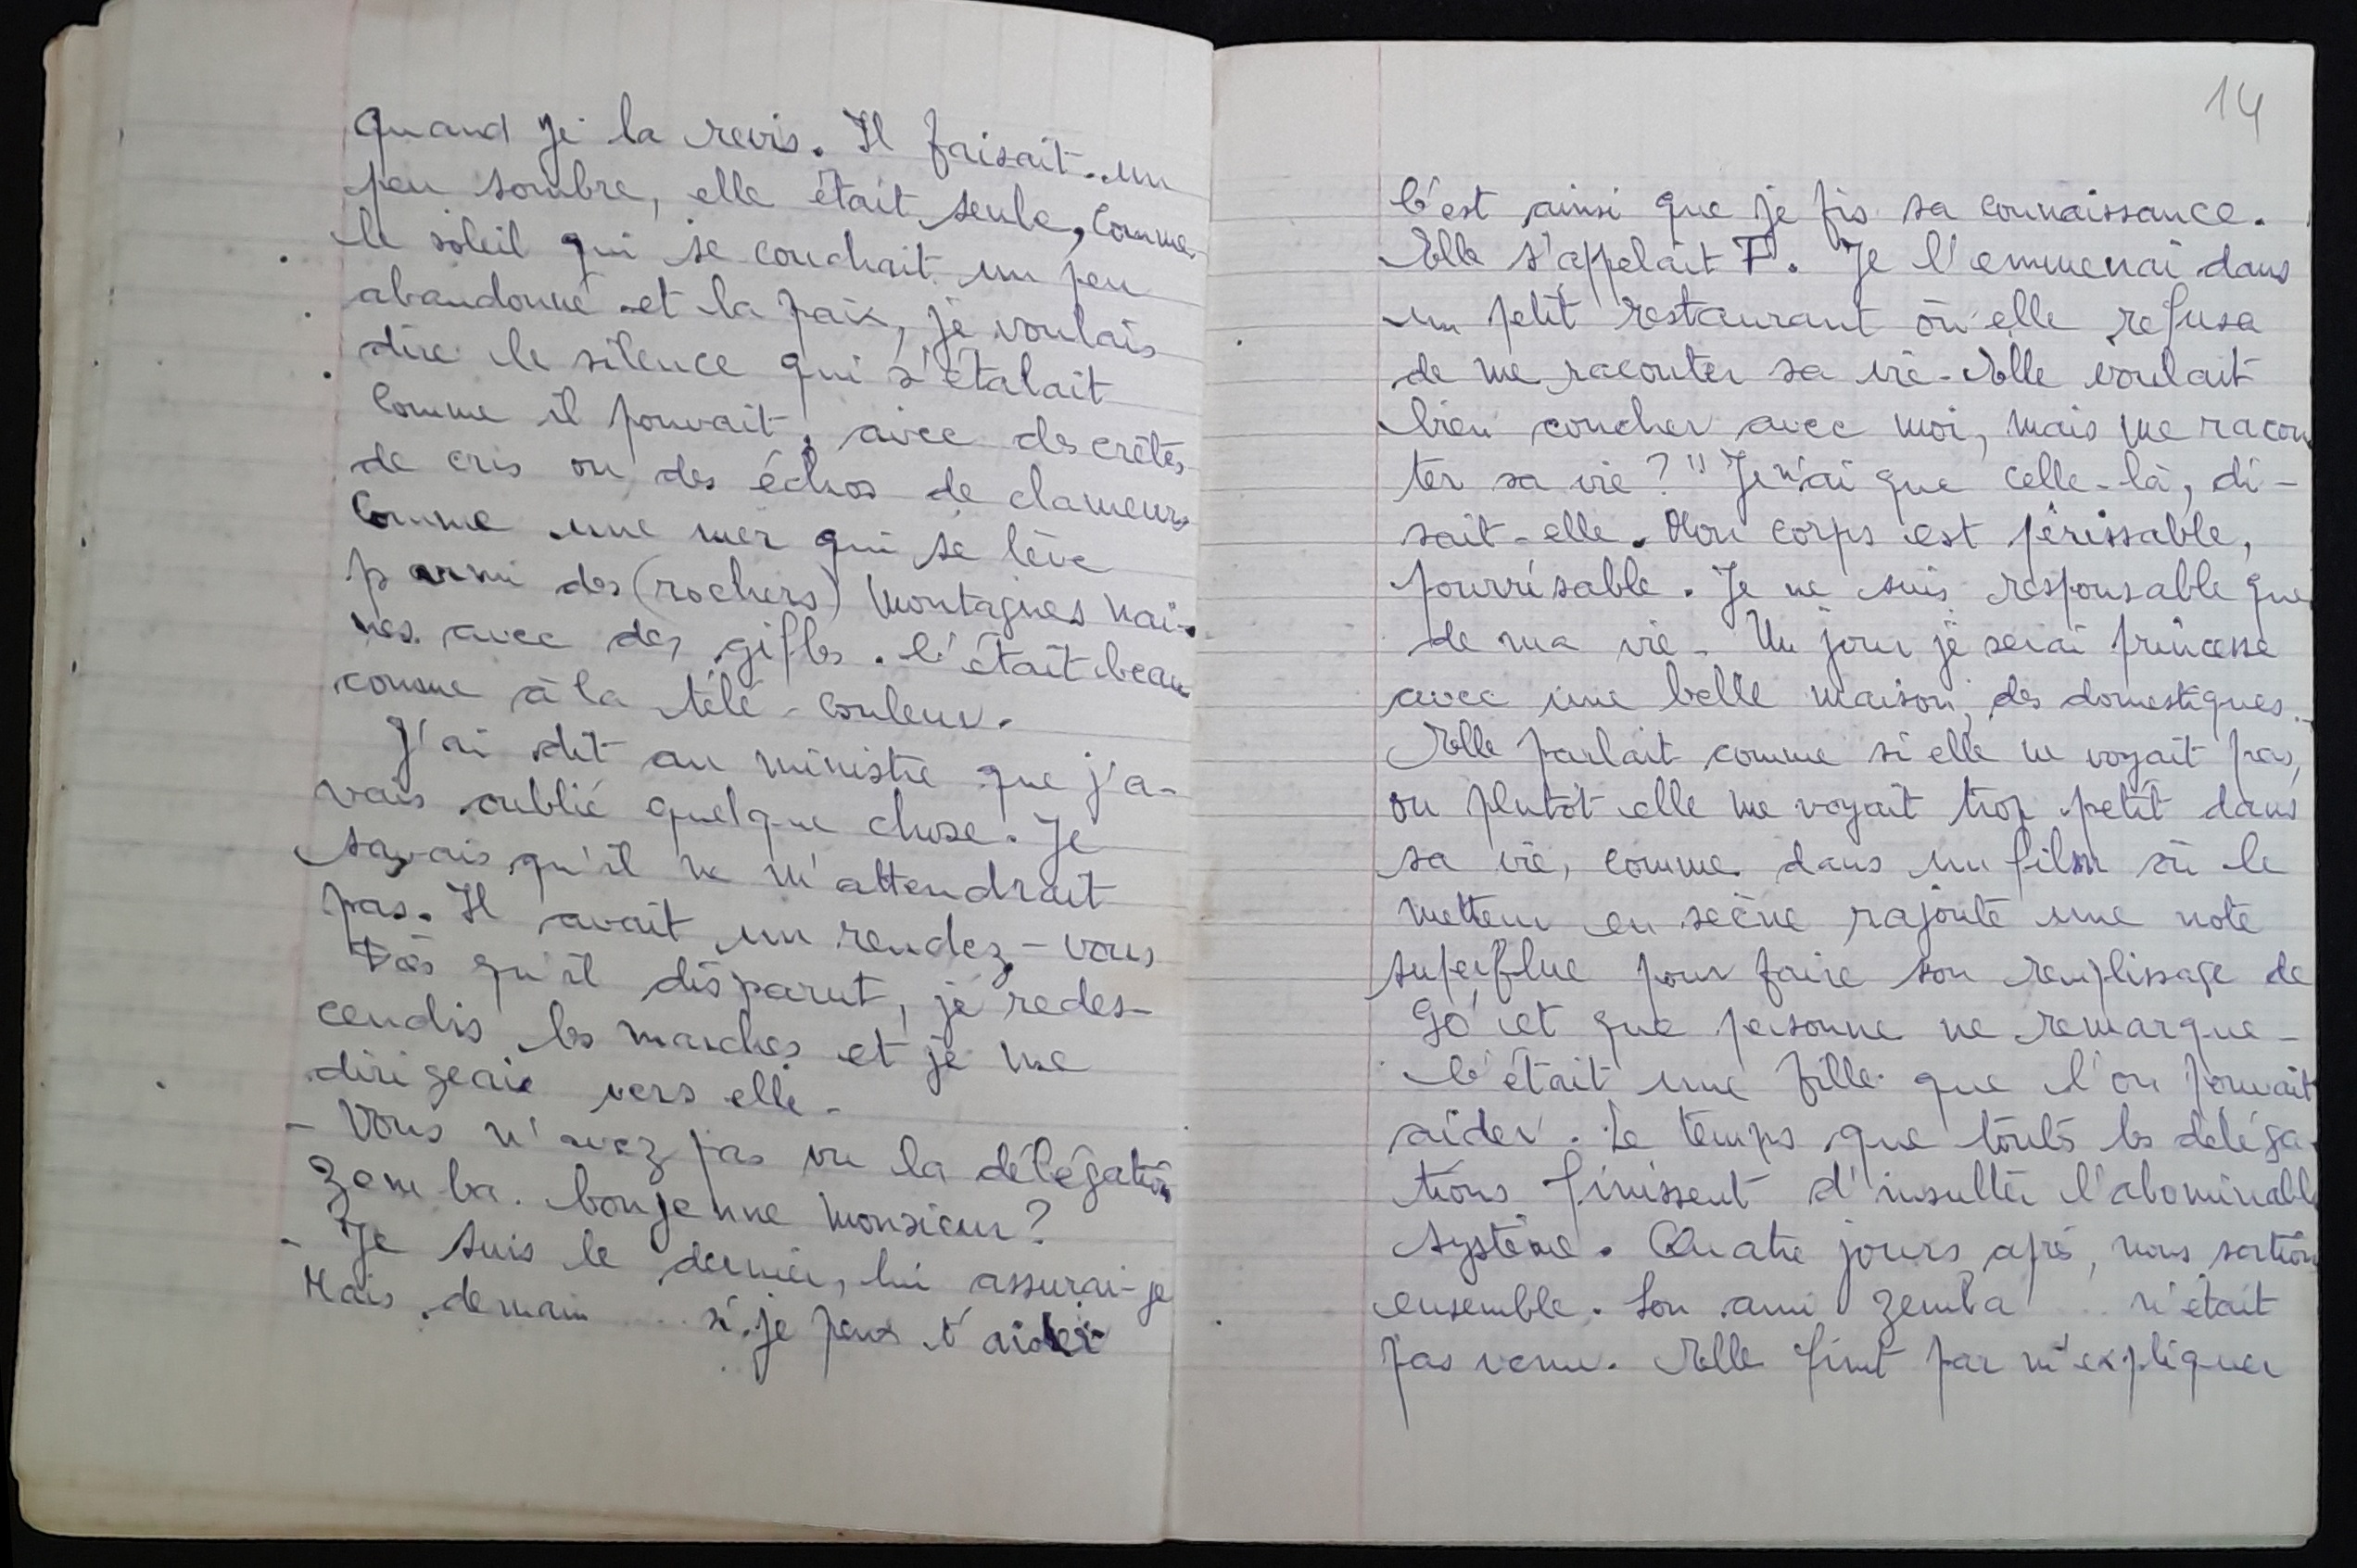 quand je la revis. Il faisait un
peu sombre, elle était seule, comme
le soleil qui se couchait un peu
abandonné et la paix, je voulais
dire le silence qui s'étalait
comme il pouvait, avec des crêtes
de cris ou des échos de clameurs
comme une mer qui se lève
parmi des (rochers) montagnes nai-
nes avec des gifles. C'était beau
comme à la télé-couleur.
J'ai dit au ministre que j'a-
vais oublié quelque chose. Je
savais qu'il ne m'attendrait
pas. Il avait un rendez-vous
Dès qu'il disparut, je redes-
cendis les marches et je me
dirigeais vers elle.
- Vous n'avez pas vu la délégation
zemba. bonjenne monsieur?
- Je suis le dernier, lui assurai-je
Mais demain ... si je peux t'aider
14
C'est ainsi que je fis sa connaissance.
Elle s'appelait F. Je l'emmenai dans
un petit restaurant où elle refusa
de me raconter sa vie. Elle voulait
bien coucher avec moi, mais me racon
ter sa vie? " Je n'ai que celle-là, di-
sait-elle. Mon corps est périssable,
pourrisable. Je ne suis responsable que
de ma vie. Un jour je serai princesse
avec une belle maison, des domestiques.
Elle parlait comme si elle ne voyait pas,
ou plutôt elle me voyait trop petit dans
sa vie, comme dans un film où le
metteur en scène rajoute une note
superflue pour faire son remplissage de
90' et que personne ne remarque.
C'était une fille que l'on pouvait
aider. Le temps que toutes les déléga-
tions finissent d'insulter l'abominable
système. Quatre jours après, nous sortions
ensemble. Son ami zemba n'était
pas venu. Elle finit par m'expliquer